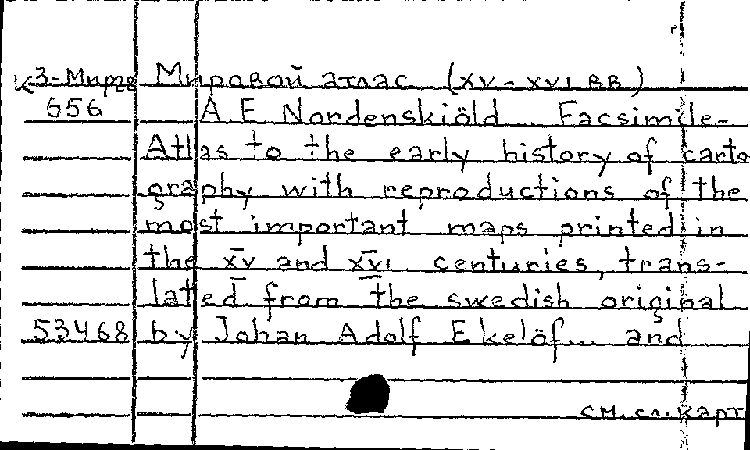 К3-Мир Мировой атлас (XV-XVI вв)
556 A E Nordenskiöld... Facsimile-
Atlas to the early history of carto
graphy with reproductions of the
most important maps printed in
the XV and XVI centuries, trans-
lated from the swedish original
53468 by Johan Adolf Ekelöf... and
см.сл.карт